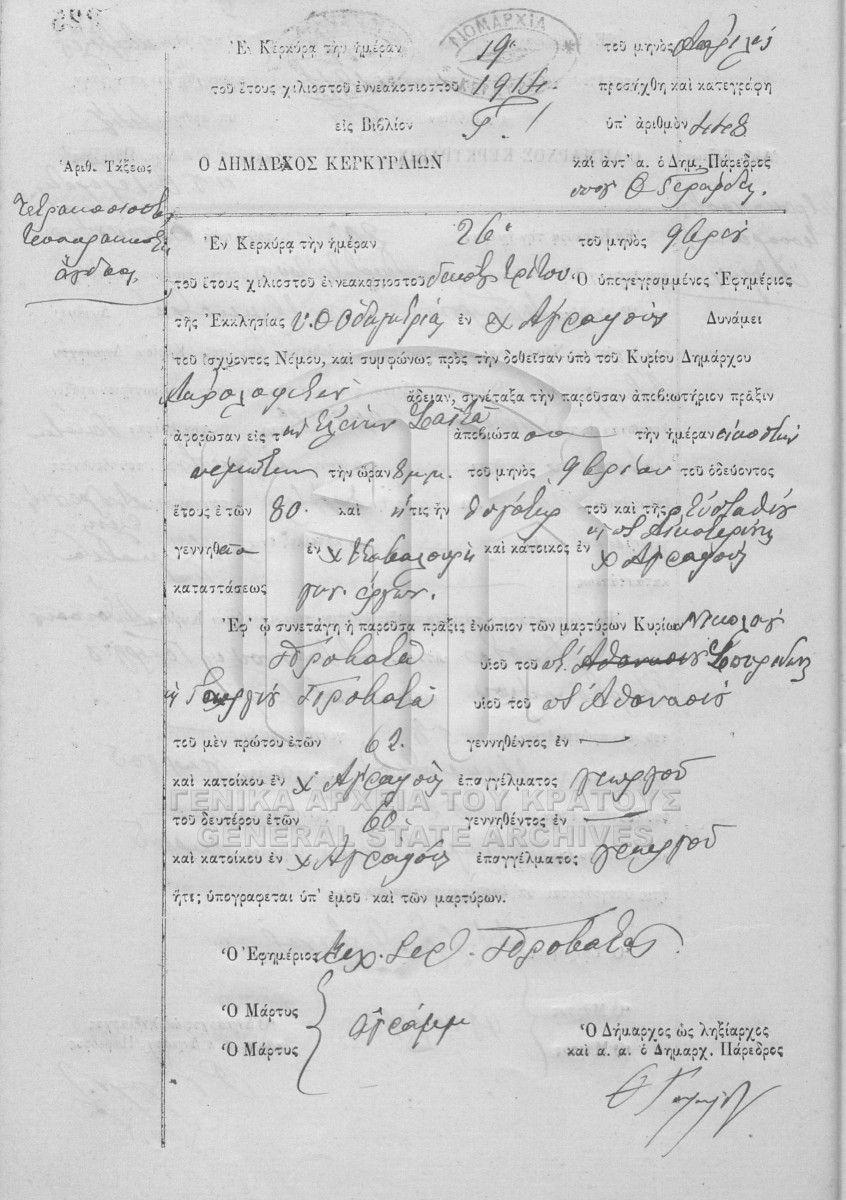 ΝΟΜΑΡΧΙΑ
Ἐν Κερκύρᾳ τὴν ἡμέραν 19ῃ τοῦ μηνὸς Ἀπριλίου
τοῦ ἔτους χιλιοστοῦ ἐννεακοσιοστοῦ 1914 προσήχθη καὶ κατεγράφη
εἰς Βιβλίον ὑπ' ἀριθμὸν 448
Ἀριθ. Τάξεως Ο ΔΗΜΑΡΧΟΣ ΚΕΡΚΥΡΑΙΩΝ καὶ ἀντ' α. ὁ Δημ. Πάρεδρος
Τετρακοσιοστὴ
τεσσαρακοστὴ
ὀγδόη
Ἐν Κερκύρᾳ τὴν ἡμέραν 26ῃ τοῦ μηνὸς 9βρίου
τοῦ ἔτους χιλιοστοῦ ἐννεακοσιοστοῦ δεκάτου τρίτου Ὁ ὑπογεγραμμένος Ἐφημέριος
τῆς Ἐκκλησίας Υ. Θ. Ὁδηγητρίας ἐν χ Ἀγραφοὺς Δυνάμει
τοῦ ἰσχύοντος Νόμου, καὶ συμφώνως πρὸς τὴν δοθεῖσαν ὑπὸ τοῦ Κυρίου Δημάρχου
ἄδειαν, συνέταξα τὴν παροῦσαν ἀποβιωτήριον πρᾶξιν
ἀφορῶσαν εἰς τὴν Ἑλένην ἀποβιώσασαν τὴν ἡμέραν εἰκοστὴν
πέμπτην τὴν ὥραν 8 μ.μ. τοῦ μηνὸς 9βρίου τοῦ ὁδεύοντος
ἔτους ἐτῶν 80 καὶ ἥτις ἦν θυγάτηρ τοῦ καὶ τῆς Εὐσταθίου
γεννηθεῖσα ἐν χ καὶ κάτοικος ἐν χ Ἀγραφοὺς
καὶ Αἰκατερίνης
καταστάσεως
Ἐφ' ᾧ συνετάγη ἡ παροῦσα πρᾶξις ἐνώπιον τῶν μαρτύρων Κυρίων Νικολάου
Προβατᾶ υἱοῦ τοῦ ποτ. Ἀθανασίου Σπυρίδωνος
καὶ Γεωργίου Προβατᾶ υἱοῦ τοῦ ποτ. Ἀθανασίου
τοῦ μὲν πρώτου ἐτῶν 62 γεννηθέντος ἐν —
καὶ κατοίκου ἐν χ. Ἀγραφοὺς ἐπαγγέλματος γεωργοῦ
ΓΕΝΙΚΑ ΑΡΧΕΙΑ ΤΟΥ ΚΡΑΤΟΥΣ
τοῦ δευτέρου ἐτῶν 60 γεννηθέντος ἐν —
GENERAL STATE ARCHIVES
καὶ κατοίκου ἐν χ Ἀγραφοὺς ἐπαγγέλματος γεωργοῦ
ἥτις ὑπογραφεται ὑπ' ἐμοῦ καὶ τῶν μαρτύρων.
Ὁ Ἐφημέριος Προβατᾶς
Ὁ Μάρτυς
Ὁ Μάρτυς ἀγράμμ
Ὁ Δήμαρχος ὡς ληξίαρχος
καὶ α. α. ὁ Δημαρχ. Πάρεδρος